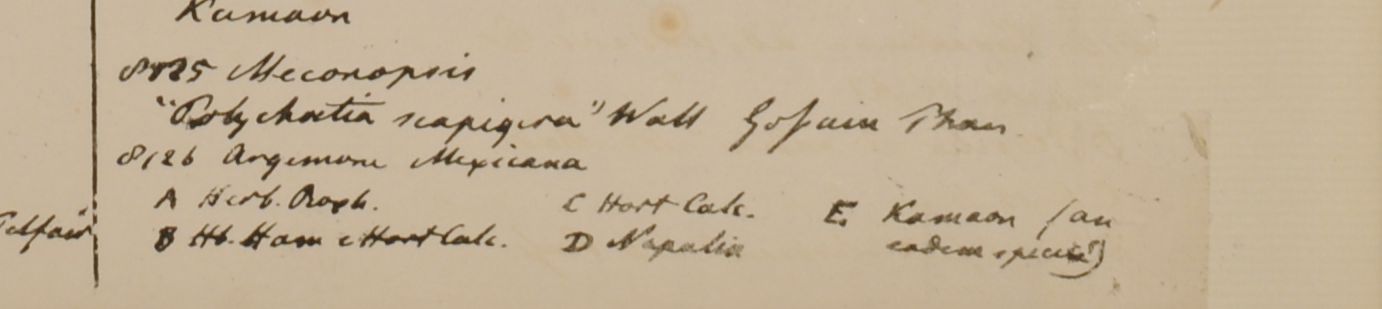 Kamaon
8125 Meconopsis
"Polychætia scapigera" Wall Gossain Than
8126 Argemone Mexicana
A Herb. Roxb. C Hort Calc. E. Kamaon (an
Telfair" B Hb. Ham e Hort Calc. D Napalia eadem species)